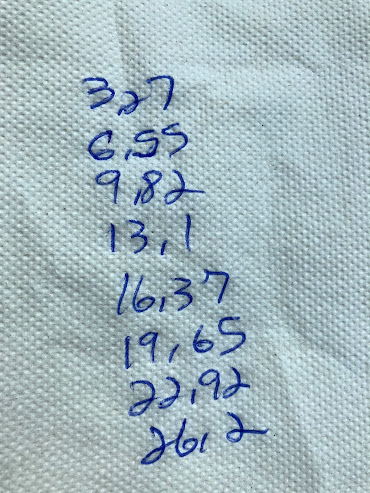 3,27
6,55
9,82
13,1
16,37
19,65
22,92
26,2